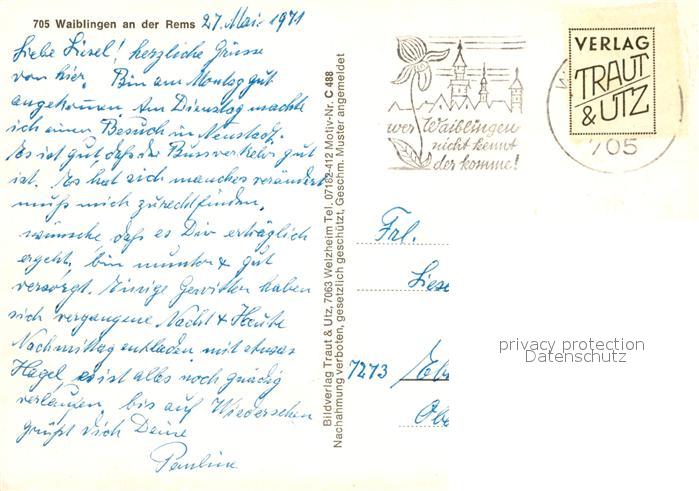 705 Waiblingen an der Rems 27. Mai 1971
Liebe Liesel! herzliche Grüsse
von hier. Bin am Montag gut
angekommen. Am Dienstag machte
ich einen Besuch in Neustadt.
Es ist gut daß der Bussverkehr gut
ist. Es hat sich manches verändert
muß mich zurechtfinden.
wünsche daß es Dir erträglich
ergeht, bin munter & gut
versorgt. Einige Gewitter haben
sich vergangene Nacht & Heute
Nachmittag entladen mit etwas
Hagel, es ist alles noch gnädig
verlaufen. bis auf Wiedersehen
grüßt Dich Deine
Pauline
Bildverlag Traut & Utz, 7063 Welzheim Tel. 07182-412 Motiv-Nr. C 488
Nachahmung verboten, gesetzlich geschützt, Geschm. Muster angemeldet
wer Waiblingen
nicht kennt
der komme!
VERLAG
TRAUT
& UTZ
705
Frl.
Liese
7273
Obe
privacy protection
Datenschutz